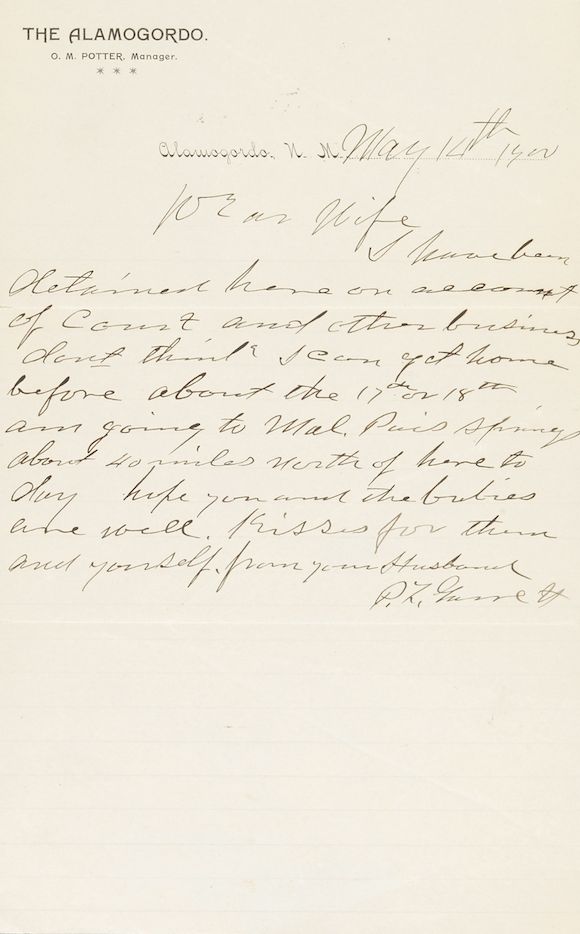 THE ALAMOGORDO.
O. M. POTTER, Manager.
* * *
Alamogordo, N. M. May 14th 1900
Dear Wife
I have been
detained here on account
of Court and other business
dont think I can get home
before about the 17th or 18th
am going to Mal. Pais Spring
about 40 miles north of here to
day hope you and the babies
are well. Kisses for them
and yourself. from your Husband
P. F. Garrett